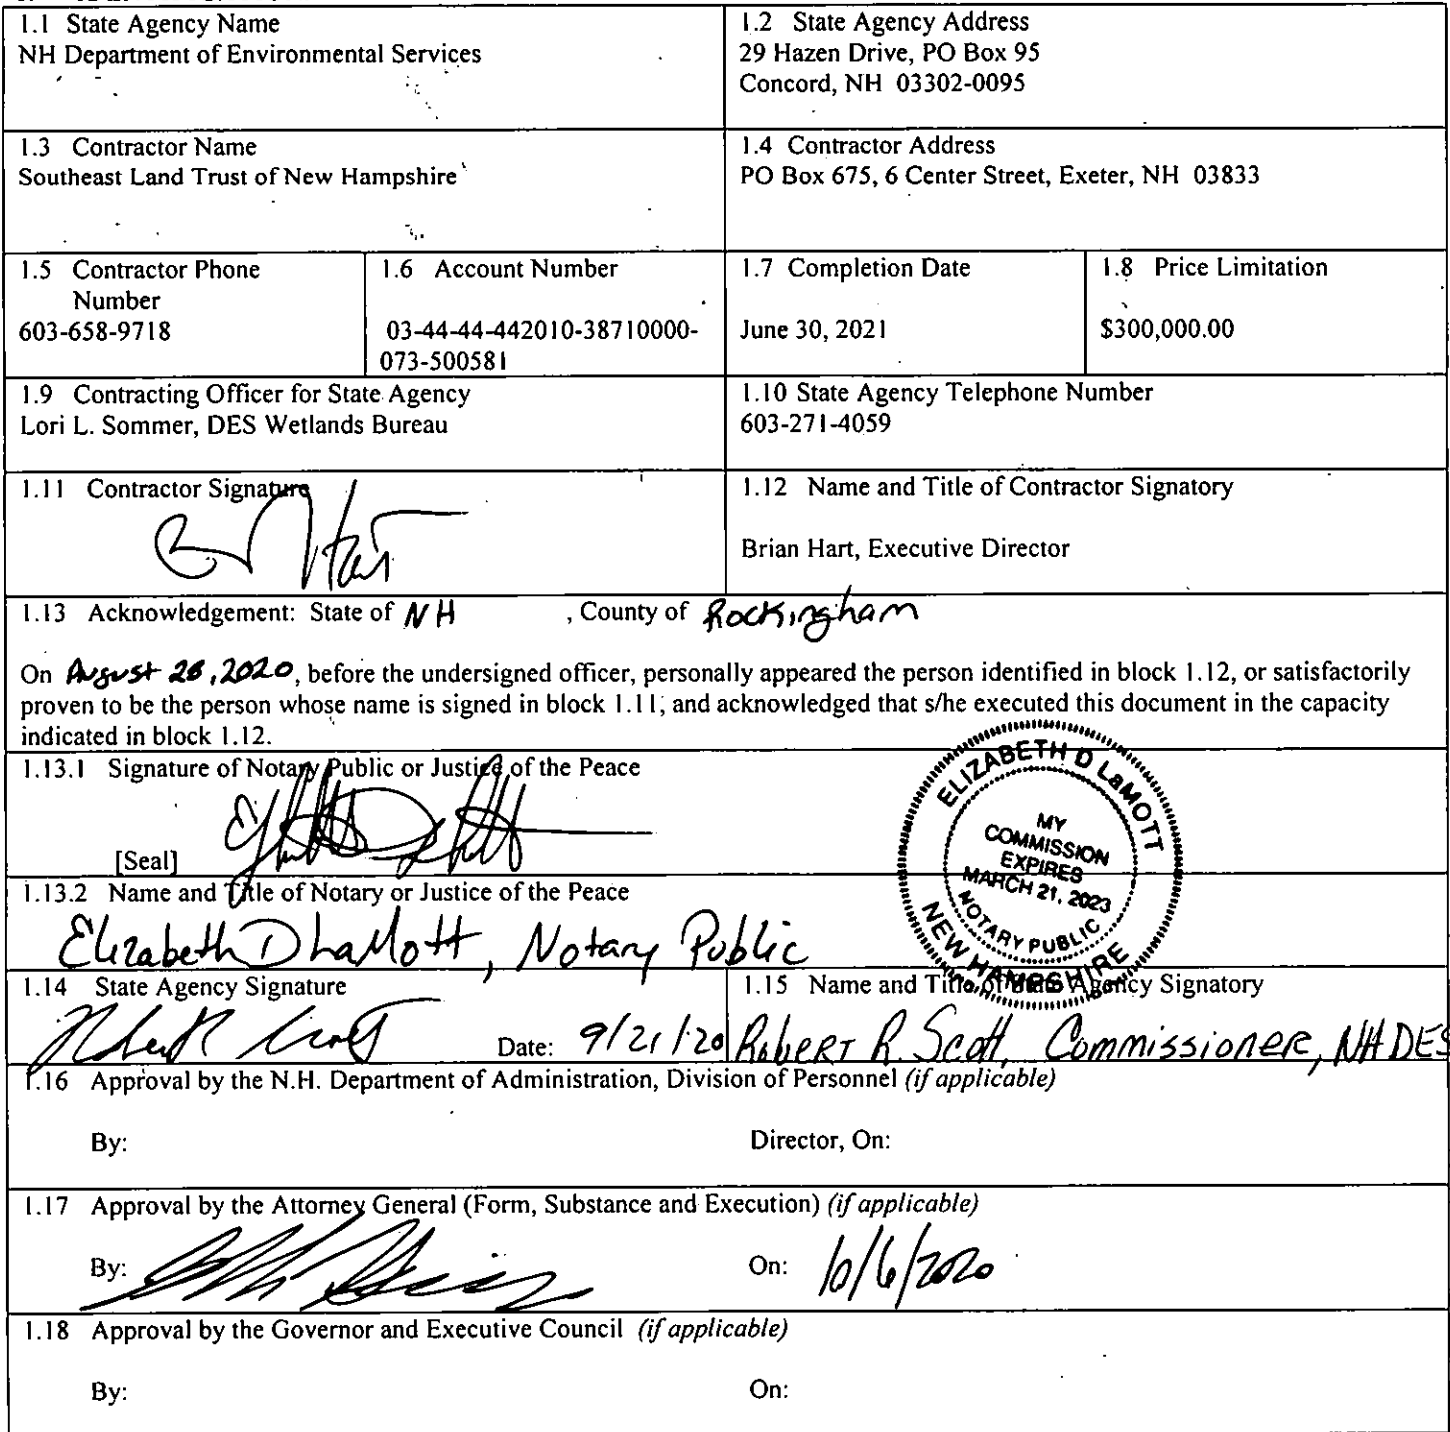 1.1 State Agency Name
NH Department of Environmental Services
1.2 State Agency Address
29 Hazen Drive, PO Box 95
Concord, NH 03302-0095
1.3 Contractor Name
Southeast Land Trust of New Hampshire
1.4 Contractor Address
PO Box 675, 6 Center Street, Exeter, NH 03833
1.5 Contractor Phone
Number
603-658-9718
1.6 Account Number
03-44-44-442010-38710000-
073-500581
1.7 Completion Date
June 30, 2021
1.8 Price Limitation
$300,000.00
1.9 Contracting Officer for State Agency
Lori L. Sommer, DES Wetlands Bureau
1.10 State Agency Telephone Number
603-271-4059
1.11 Contractor Signature
1.12 Name and Title of Contractor Signatory
Brian Hart, Executive Director
1.13 Acknowledgement: State of NH , County of Rockingham
On August 28, 2020, before the undersigned officer, personally appeared the person identified in block 1.12, or satisfactorily
proven to be the person whose name is signed in block 1.11, and acknowledged that s/he executed this document in the capacity
indicated in block 1.12.
1.13.1 Signature of Notary Public or Justice of the Peace
[Seal]
ELIZABETH D LaMOTT
MY
COMMISSION
EXPIRES
MARCH 21, 2023
NOTARY PUBLIC
NEW HAMPSHIRE
1.13.2 Name and Title of Notary or Justice of the Peace
Elizabeth D LaMott, Notary Public
1.14 State Agency Signature
Date: 9/21/20
1.15 Name and Title of State Agency Signatory
Robert R. Scott, Commissioner, NHDES
1.16 Approval by the N.H. Department of Administration, Division of Personnel (if applicable)
By: Director, On:
1.17 Approval by the Attorney General (Form, Substance and Execution) (if applicable)
By: On: 10/6/2020
1.18 Approval by the Governor and Executive Council (if applicable)
By: On: